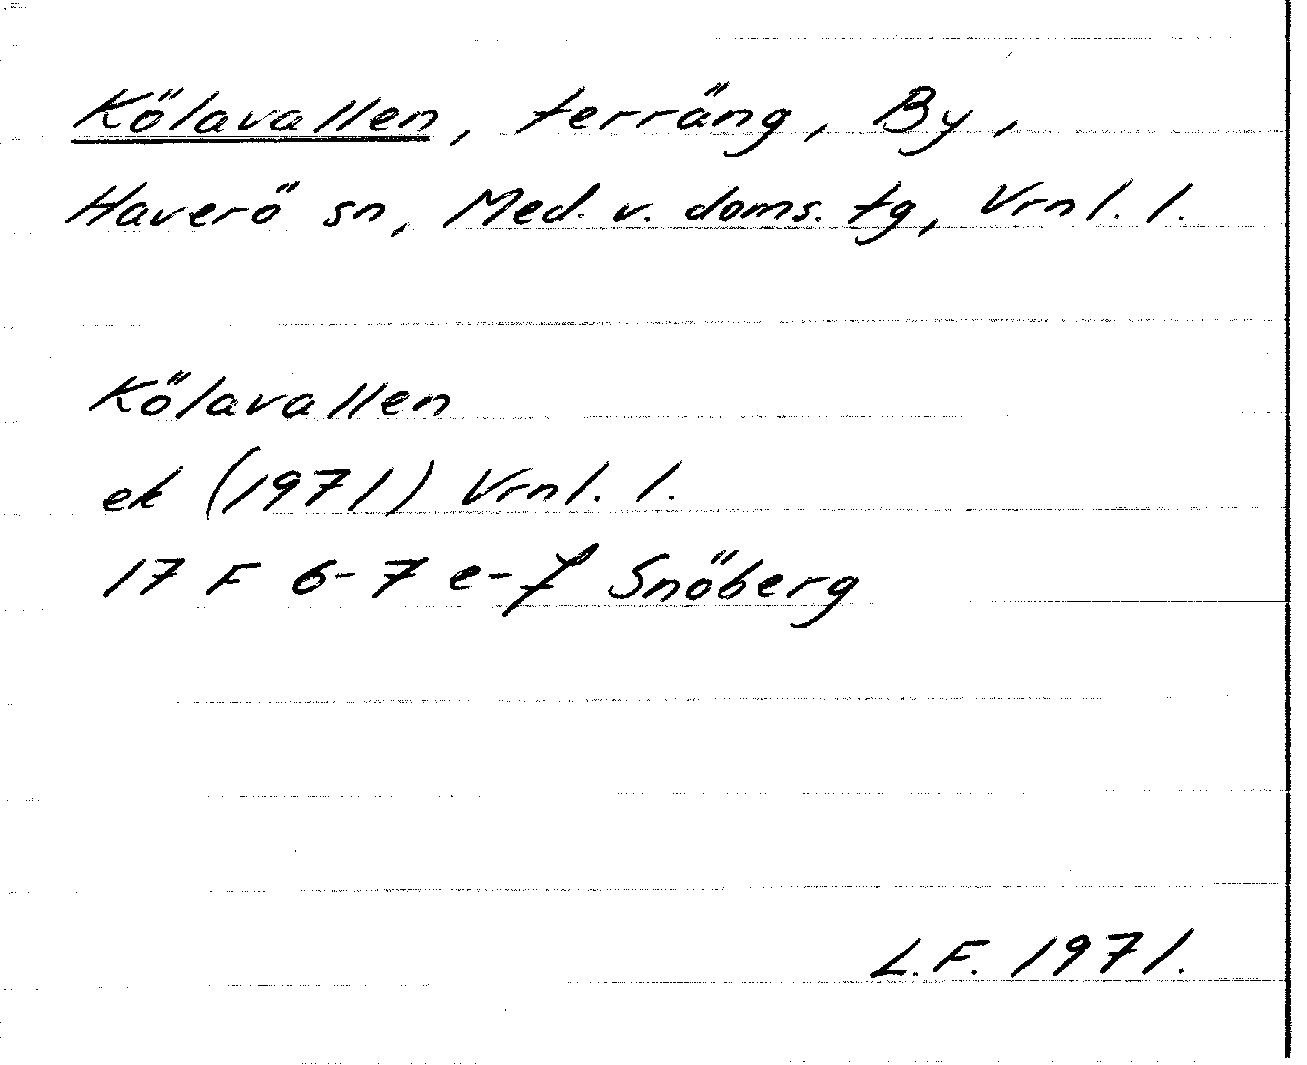 Kölavallen, terräng, By,
Haverö sn, Med. v. doms. tg, Vrnl. l.
Kölavallen
ek (1971) Vrnl. l.
17 F 6-7 e-f Snöberg
L.F. 1971.